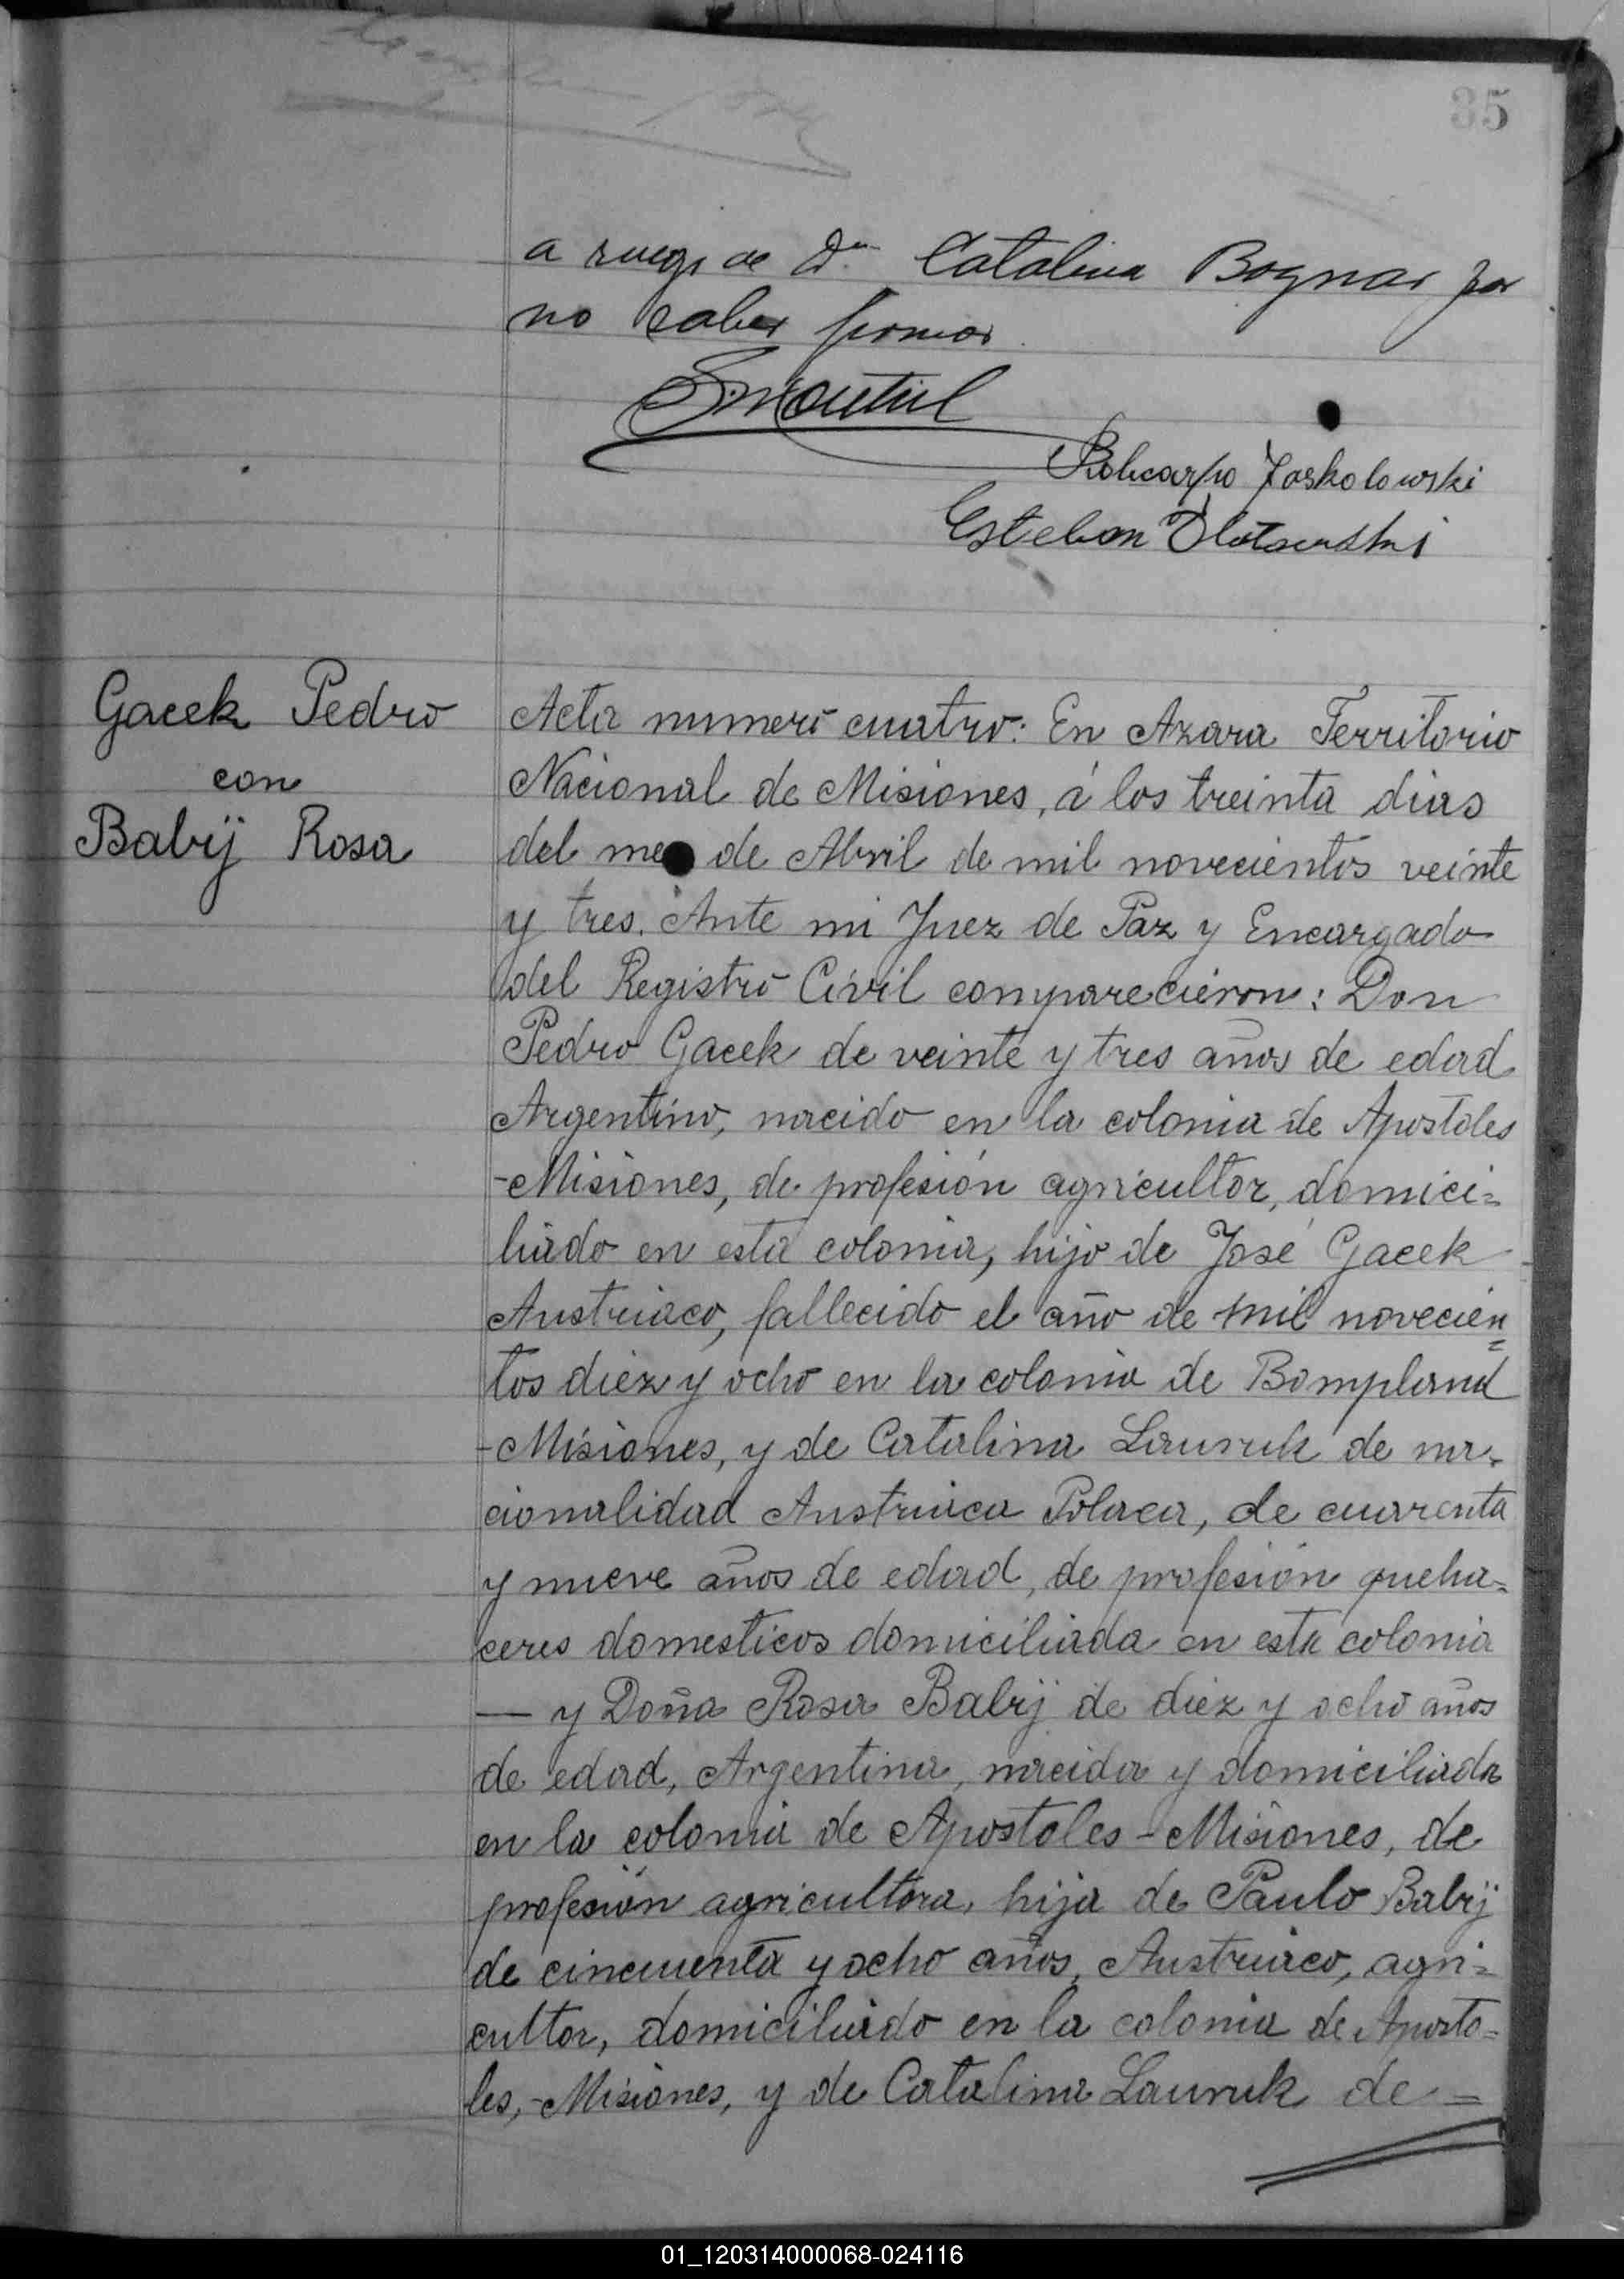 35
a ruego de Dª Catalina Bognar por
no saber firmar
Policarpo Joskolowski
Esteban
Gacek Pedro
con
Babij Rosa
Acta numero cuatro: En Azara Territorio
Nacional de Misiones, á los treinta dias
del me de Abril de mil novecientos veinte
y tres. Ante mi Juez de Paz y Encargado
del Registro Civil comparecieron: Don
Pedro Gacek de veinte y tres años de edad
Argentino, nacido en la colonia de Apostoles
-Misiones, de profesión agricultor, domici=
liado en esta colonia, hijo de José Gacek
Austriaco, fallecido el año de mil novecien=
tos diez y ocho en la colonia de Bompland
-Misiones, y de Catalina Lauruk de na-
cionalidad Austriaca Polaca, de cuarenta
y nueve años de edad, de profesión queha=
ceres domesticos domiciliada en esta colonia
— y Doña Rosa Babij de diez y ocho años
de edad, Argentina, nacida y domiciliada
en la colonia de Apostoles-Misiones, de
profesión agricultora, hija de Paulo Babij
de cincuenta y ocho años, Austriaco, agri=
cultor, domiciliado en la colonia de Aposto=
les,-Misiones, y de Catalina Lauruk de =
01_120314000068-024116